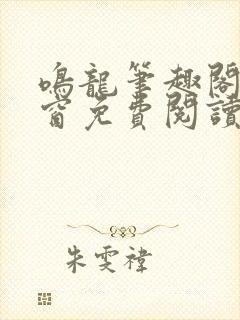 鳴龍筆趣閣
窗免費閱讀
朱雯禕